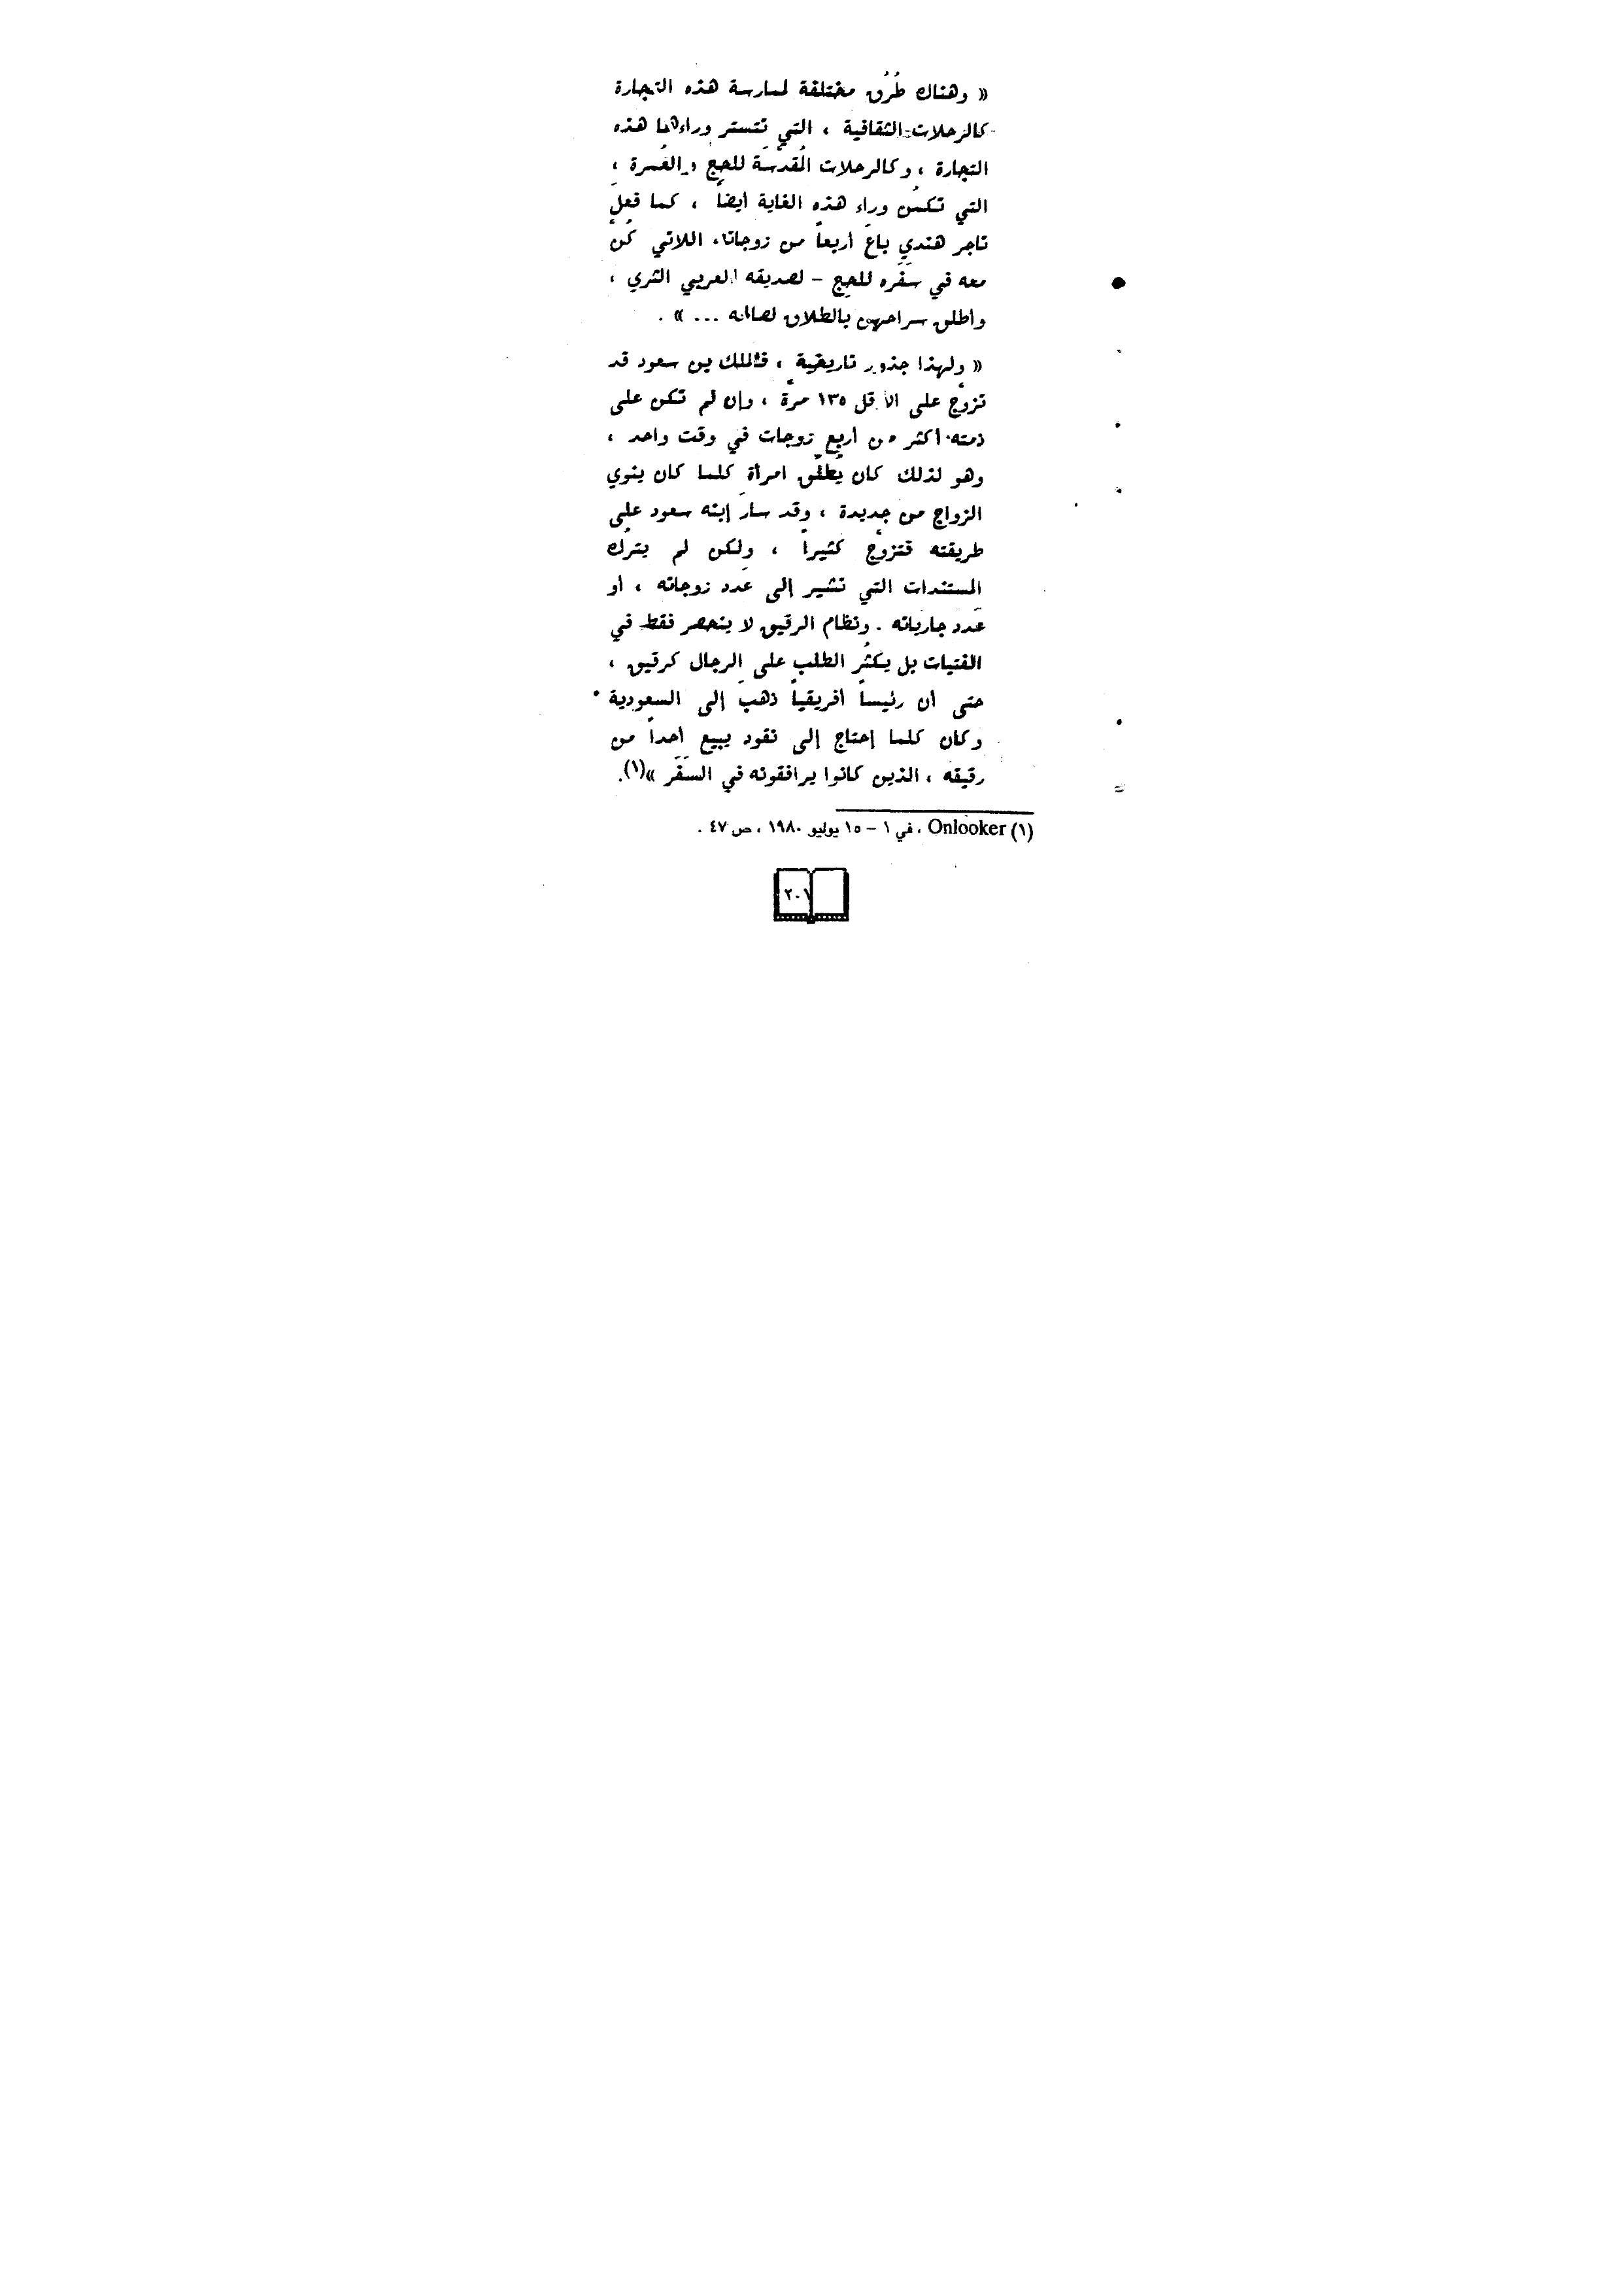 « وهناك طُرُق مختلفة لممارسة هذه التجارة
كالرحلات الثقافية ، التي تتستر وراءها هذه
التجارة ، وكالرحلات المُقدسَة للحجّ والعُمرة ،
التي تكمُن وراء هذه الغاية أيضاً ، كما فعلَ
تاجر هندي باعَ أربعاً من زوجاته اللاتي كُنّ
معه في سَفَره للحجِ – لصديقه العربي الثري ،
وأطلق سراحهن بالطلاق لصالحه ... » .
« ولهذا جذور تاريخية ، فالملك بن سعود قد
تزوّج على الأقل ١٣٥ مرةً ، وإن لم تكن على
ذمته أكثر من أربع زوجات في وقت واحد ،
وهو لذلك كان يُطلّق امرأة كلما كان ينوي
الزواج من جديدة ، وقد سارَ إبنه سعود على
طريقته فتزوّج كثيراً ، ولكن لم يترك
المستندات التي تشير إلى عَدد زوجاته ، أو
عَدد جارياته . ونظام الرقيق لا ينحصر فقط في
الفتيات بل يكثُر الطلب على الرجال كرقيق ،
حتى أن رئيساً أفريقياً ذهبَ إلى السعودية
وكان كلما إحتاج إلى نقود يبيع أحداً من
رقيقه ، الذين كانوا يرافقونه في السَفَر »(١).
(١) Onlooker ، في ١ – ١٥ يوليو ١٩٨٠ ، ص ٤٧ .
٢٠١